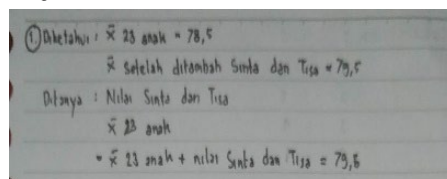 ① Diketahui : x̄ 23 anak = 78,5
x̄ setelah ditambah Sinta dan Tisa = 79,5
Ditanya : Nilai Sinta dan Tisa
x̄ 23 anak
= x̄ 23 anak + nilai Sinta dan Tisa = 79,5